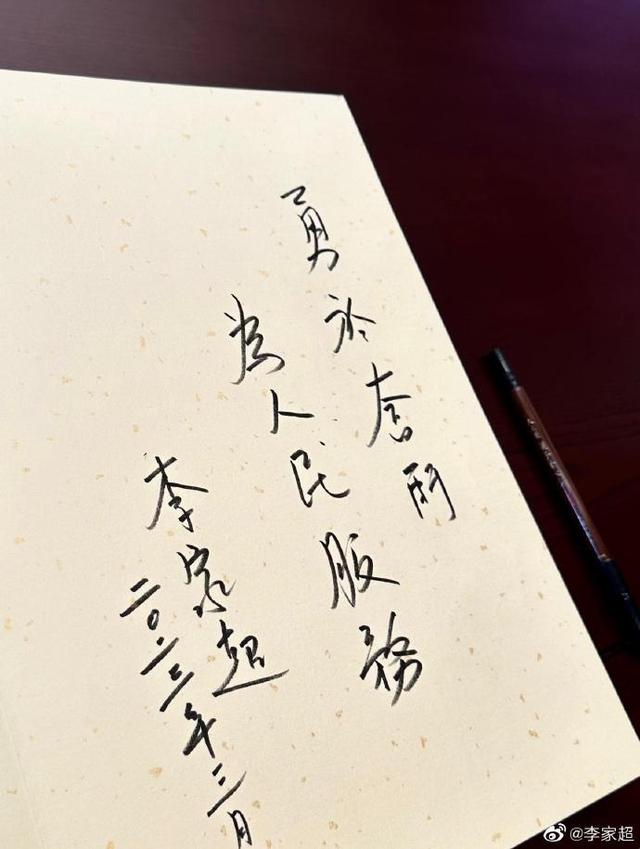 勇於奮鬥
為人民服務
李家超
二〇二三年三月
@李家超